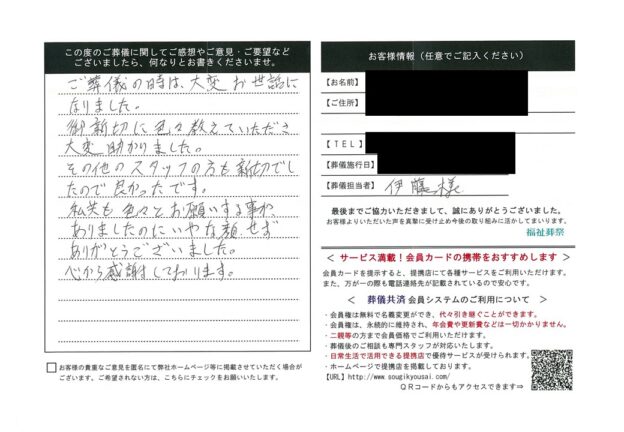 この度のご葬儀に関してご感想やご意見・ご要望など
ございましたら、何なりとお書きくださいませ。
ご葬儀の時は、大変お世話に
なりました。
御新切に色々教えていただき
大変助かりました。
その他のスタッフの方も新切でし
たので良かったです。
私共も色々とお願いする事が
ありましたのにいやな顔せず
ありがとうございました。
心から感謝しております。
お客様の貴重なご意見を匿名にて弊社ホームページ等に掲載させていただく場合が
ございます。ご希望されない方は、こちらにチェックをお願いします。
お客様情報（任意でご記入ください）
【お名前】
【ご住所】
【TEL】
【葬儀施行日】
【葬儀担当者】 伊藤様
最後までご協力いただきまして、誠にありがとうございました。
お客様よりいただいた声を真摯に受け止め今後の取り組みに活かしてまいります。
福祉葬祭
< サービス満載！会員カードの携帯をおすすめします >
会員カードを提示すると、提携店にて各種サービスをご利用いただけます。
また、万が一の際も電話連絡先が記載されているので安心です。
< 葬儀共済 会員システムのご利用について >
・会員権は無料で名義変更ができ、代々引き継ぐことができます。
・会員権は、永続的に維持され、年会費や更新費などは一切かかりません。
・二親等の方まで会員価格でご利用いただけます。
・葬儀後のご相談も専門スタッフが対応いたします。
・日常生活で活用できる提携店で優待サービスが受けられます。
・ホームページで提携店を掲載しております。
【URL】http://www.sougikyousai.com/
QRコードからもアクセスできます⇒